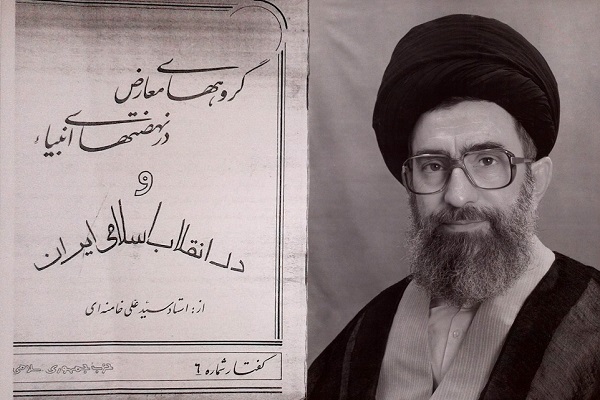 گروههای معارض
در نهضتهای انبیاء
و
در انقلاب اسلامی ایران
از: استاد سیّد علی خامنه‌ای
گفتار شماره ٦
حزب جمهوری اسلامی